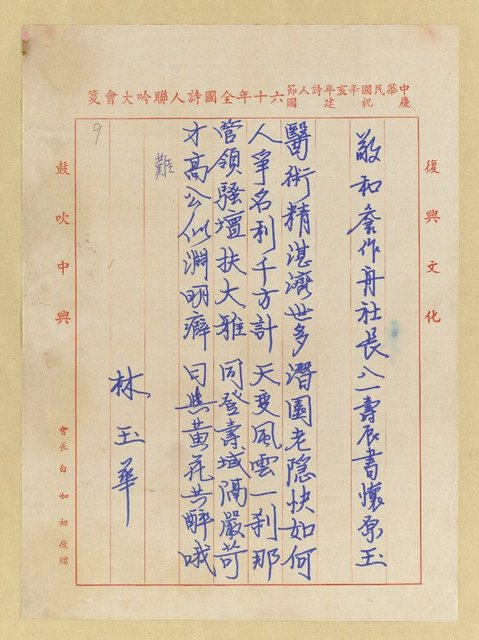 中華民國辛亥年詩人節
慶祝建國
六十年全國詩人聯吟大會箋
復興文化
敬和詹作舟社長八一壽辰書懷原玉
醫術精湛濟世多潛園老隱快如何
人爭名利千方計 天變風雲一剎那
管領騷壇扶大雅 同登壽域隔嚴苛
才高公似淵明癖 日與黃花共醉哦
難
林玉華
9
鼓吹中興
會長白如初敬贈